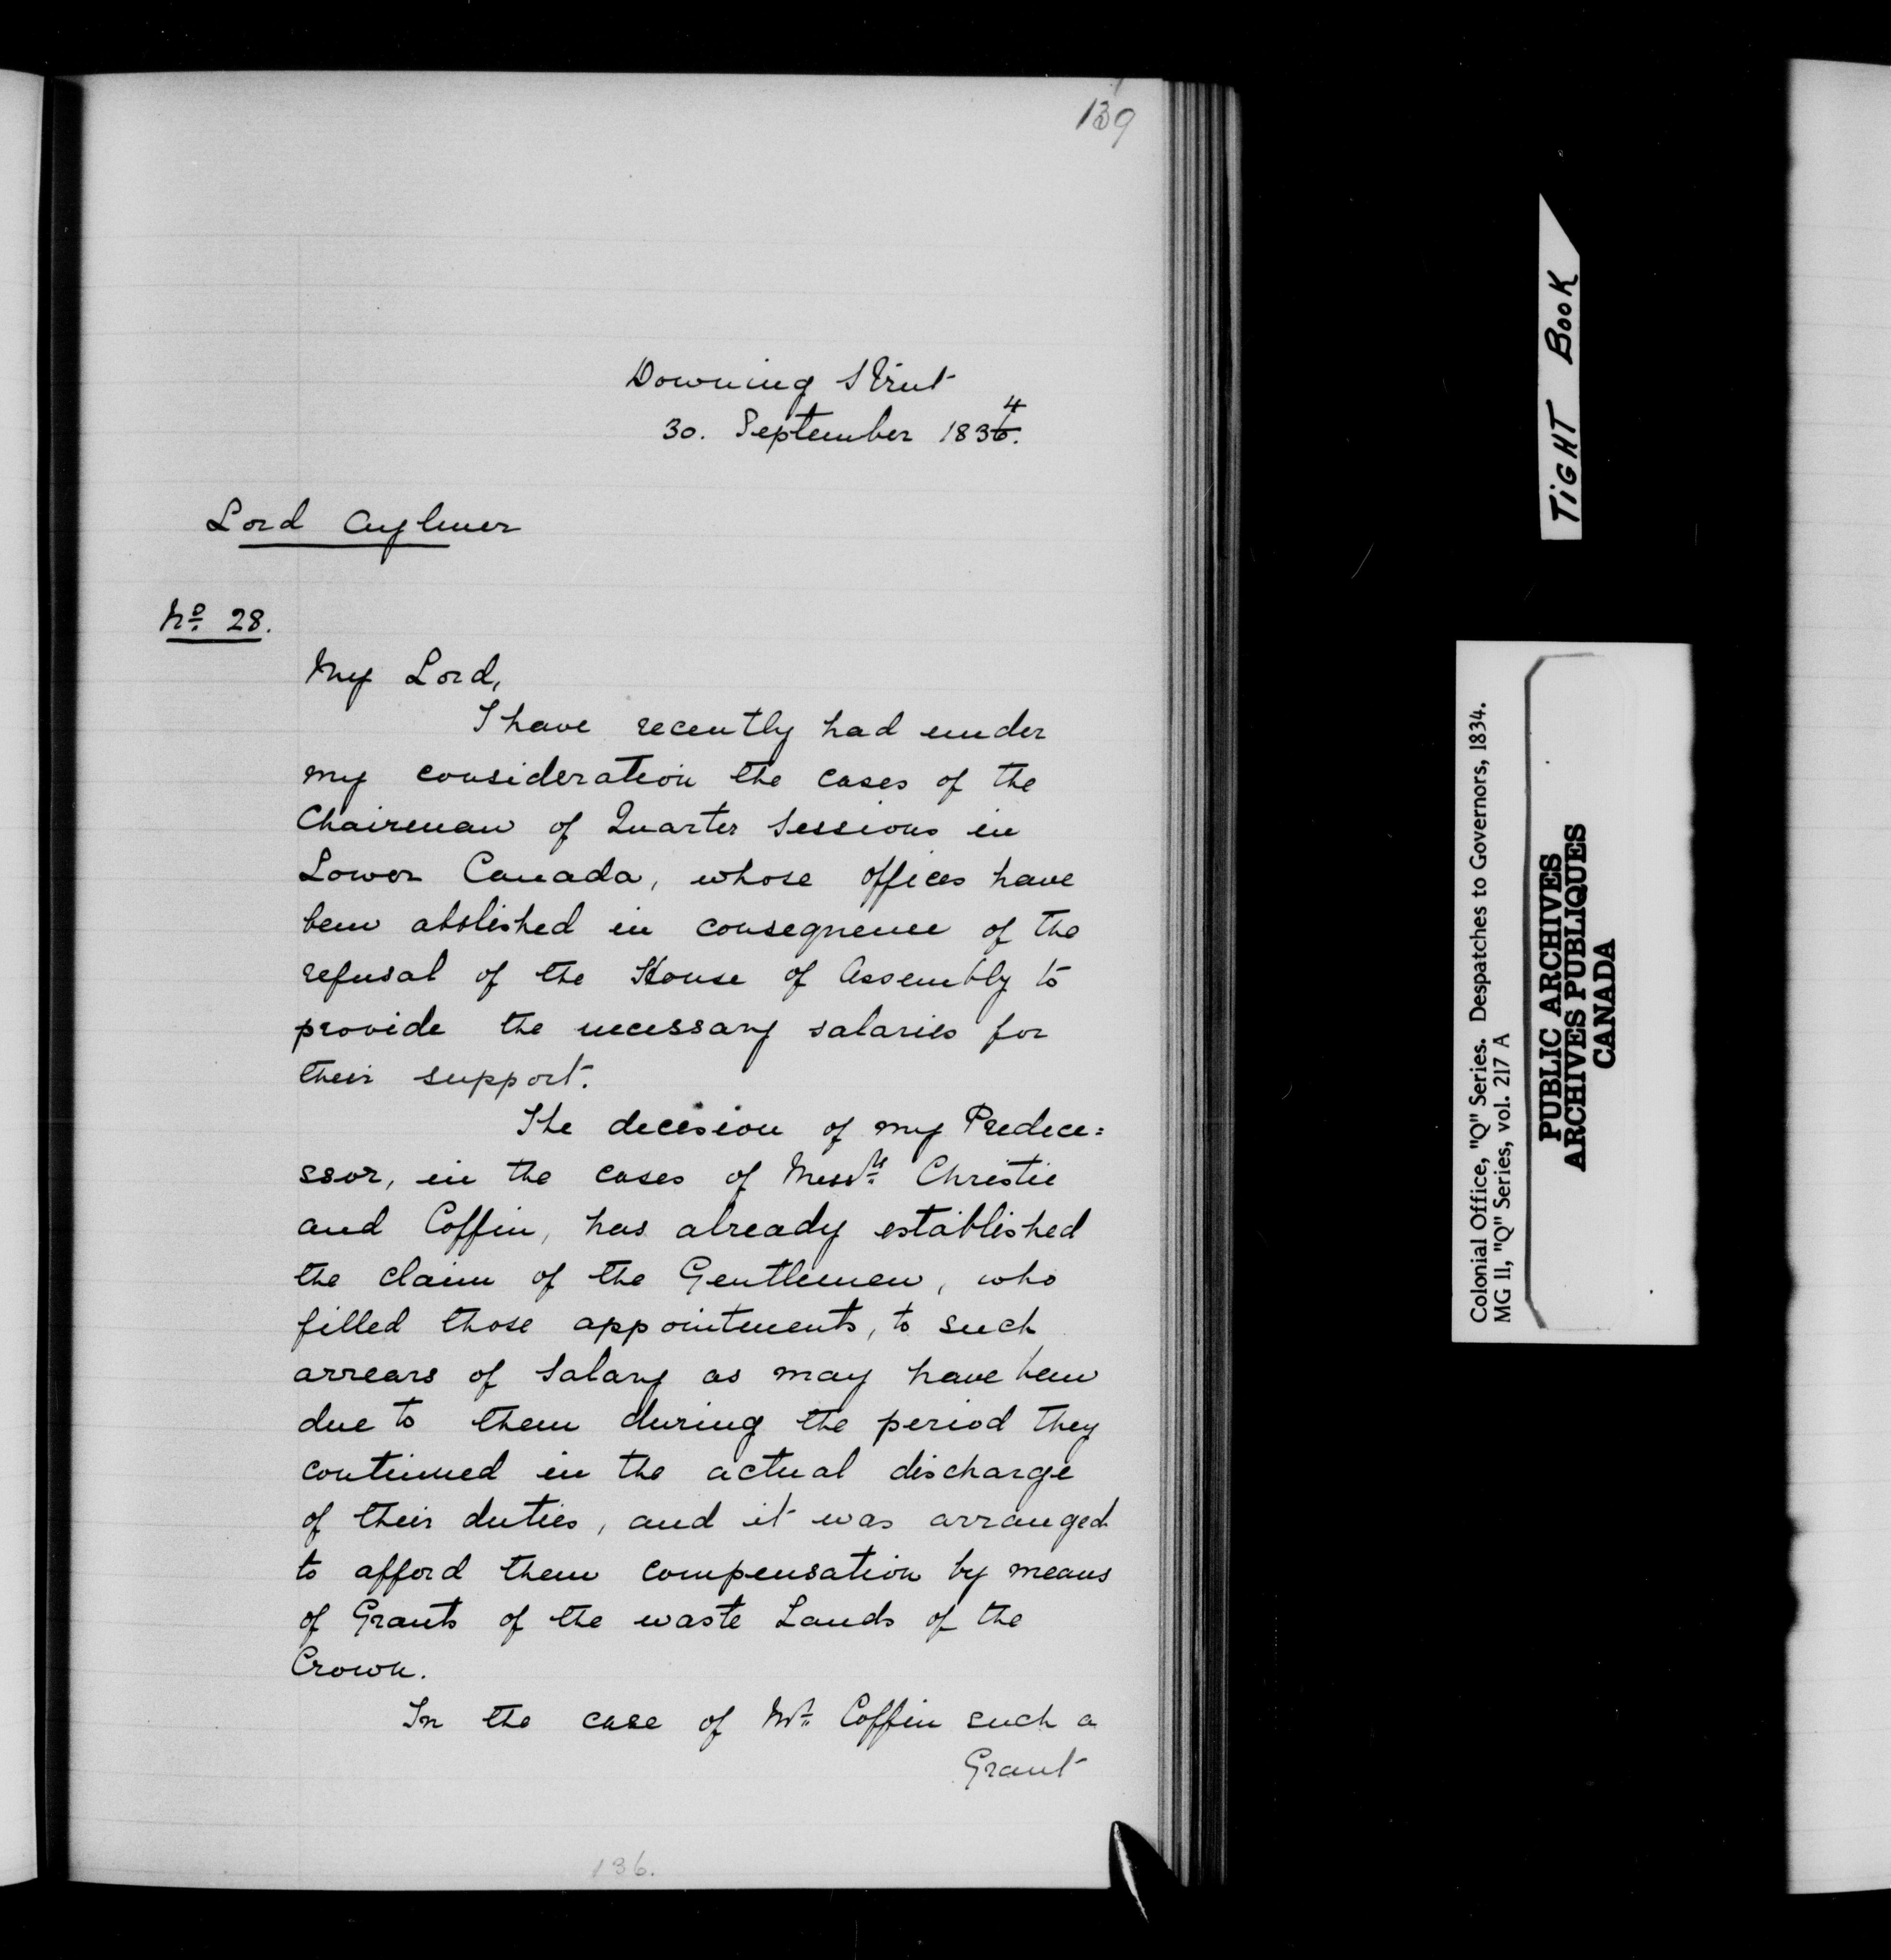 139
Downing Street
30. September 1836. 4
Lord Aylmer
No 28.
My Lord,
I have recently had under
my consideration the cases of the
Chairman of Quarter Sessions in
Lower Canada, whose offices have
been abolished in consequence of the
refusal of the House of Assembly to
provide the necessary salaries for
their support.
The decision of my Predece=
ssor, in the cases of Messrs Christie
and Coffin, has already established
the claim of the Gentlemen, who
filled those appointments, to such
arrears of Salary as may have been
due to them during the period they
continued in the actual discharge
of their duties, and it was arranged
to afford them compensation by means
of Grants of the waste Lands of the
Crown.
In the case of Mr. Coffin such a
Grant
136.
TIGHT BOOK
Colonial Office, "Q" Series. Despatches to Governors, 1834.
MG 11, "Q" Series, vol. 217 A
PUBLIC ARCHIVES
ARCHIVES PUBLIQUES
CANADA